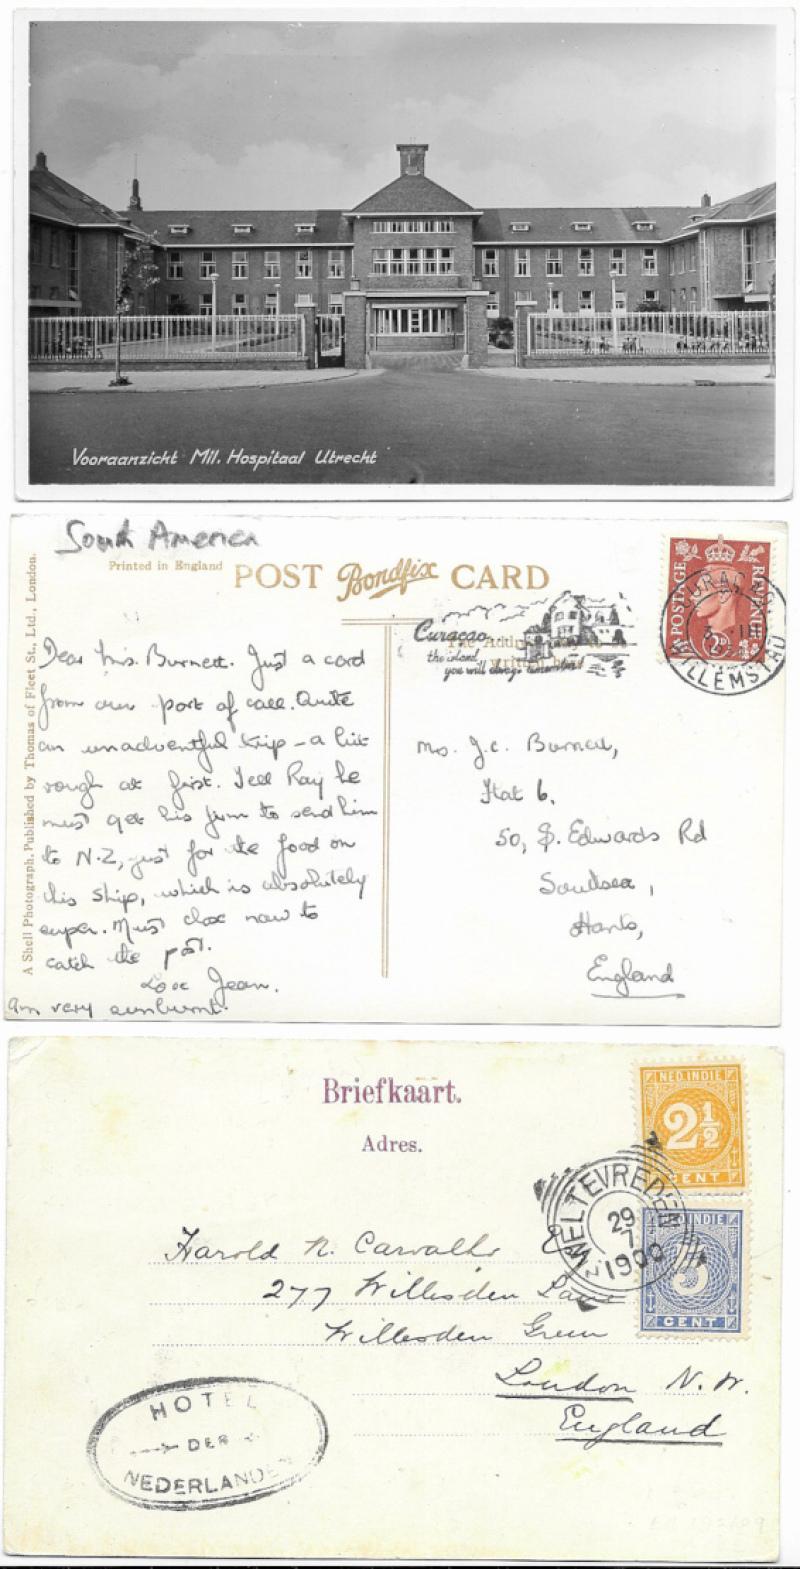 Vooraanzicht Mil. Hospitaal Utrecht
South America
Printed in England
POST Bondfix CARD
A Shell Photograph. Published by Thomas of Fleet St., Ltd., London.
POSTAGE REVENUE
2D
CURAÇAO
WILLEMSTAD
Curacao
the island
you will always remember
The Address only to be
written here
Dear Mrs. Burnett. Just a card
from our port of call. Quite
an unadventful trip - a bit
rough at first. Tell Ray he
must get his firm to send him
to N.Z, just for the food on
this ship, which is absolutely
super. Must close now to
catch the post.
Love Jean.
Am very sunburnt.
Mrs. J.C. Burnett,
Flat 6.
50, St. Edwards Rd
Southsea,
Hants,
England
Briefkaart.
Adres.
NED. INDIE
2 1/2
CENT
NED. INDIE
5
CENT
WELTEVREDEN
29
7
1900
Harold N. Carvalho Esq
277 Willesden Lane
Willesden Green
London N.W.
England
HOTEL
DER
NEDERLANDEN